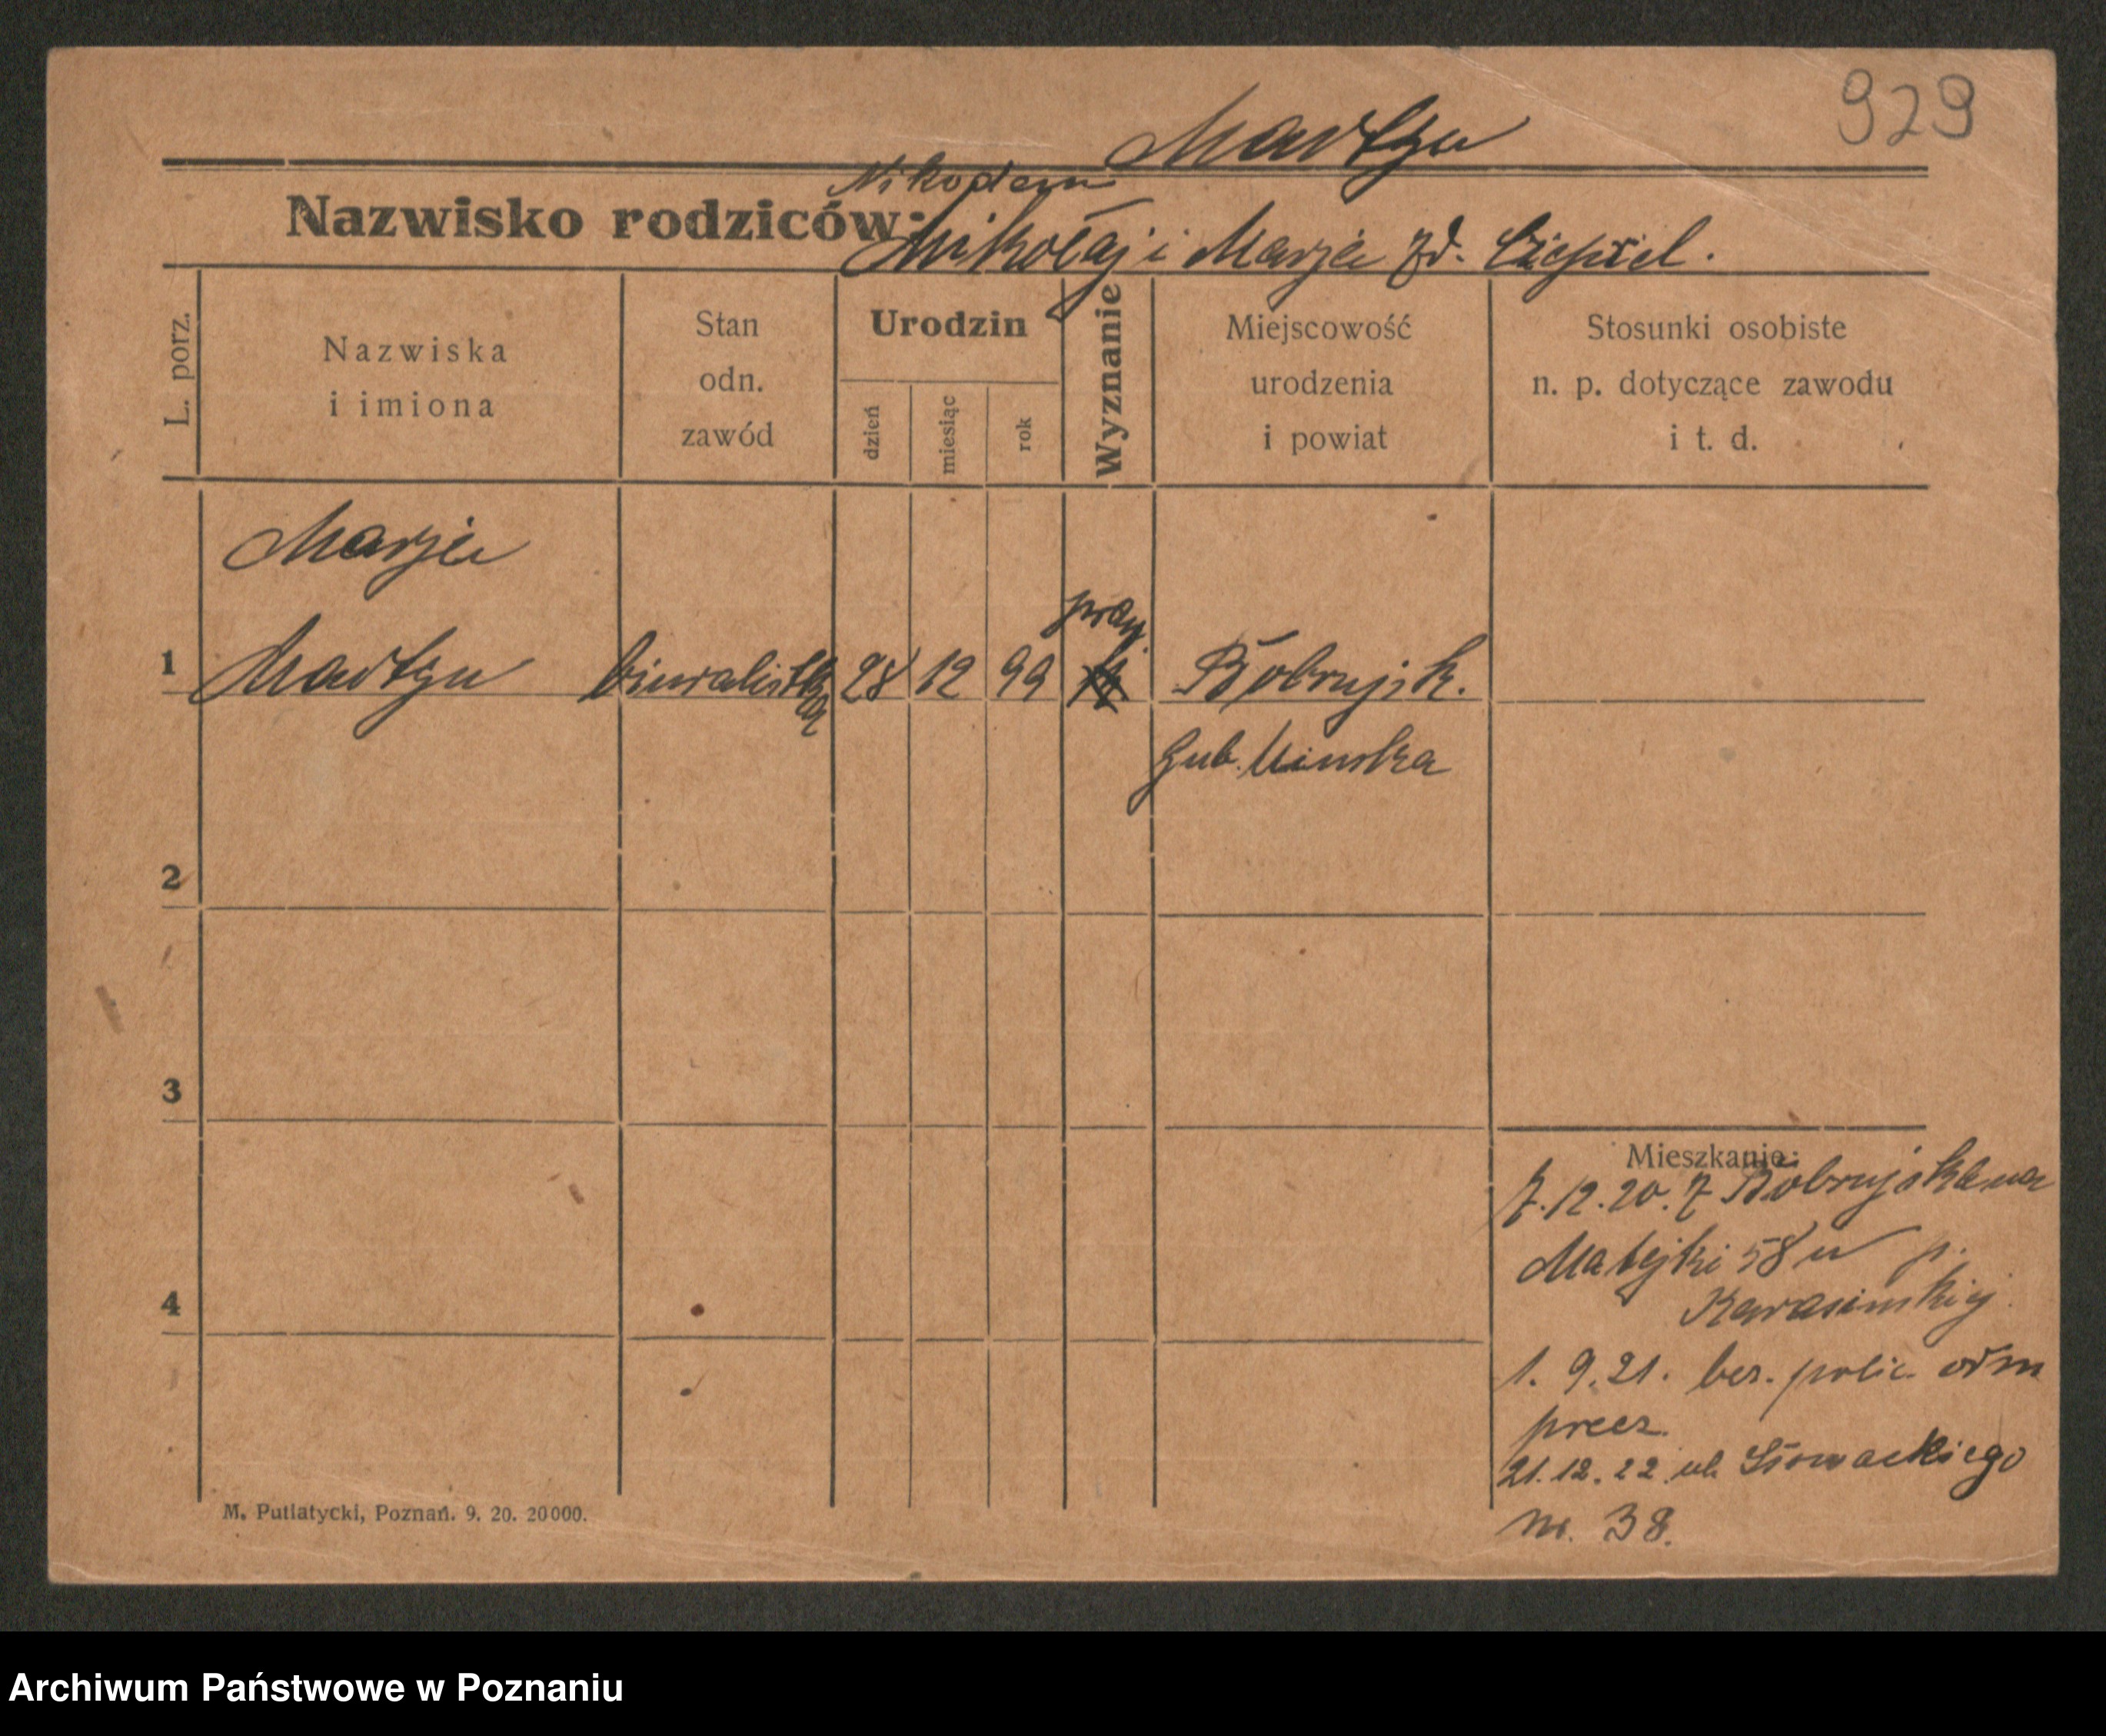 929
Martyn
Nikodem
Nazwisko rodziców: Mikołaj i Marja zd.
L. porz.
Nazwiska
i imiona
Stan
odn.
zawód
Urodzin
dzień
miesiąc
rok
Wyznanie
Miejscowość
urodzenia
i powiat
Stosunki osobiste
n. p. dotyczące zawodu
i t. d.
Marja
praw.
1 Martyn biuralistka 28 12 99 k Bobrujsk.
Gub. Minska
2
3
4
Mieszkanie:
7.12.20. z Bobrujska na
Matejki 58 u p.
1. 9. 21. bez. polic. odm
przez.
21. 12. 22 ul. Słowackiego
nr. 38.
M. Putiatycki, Poznań. 9. 20. 20000.
Archiwum Państwowe w Poznaniu